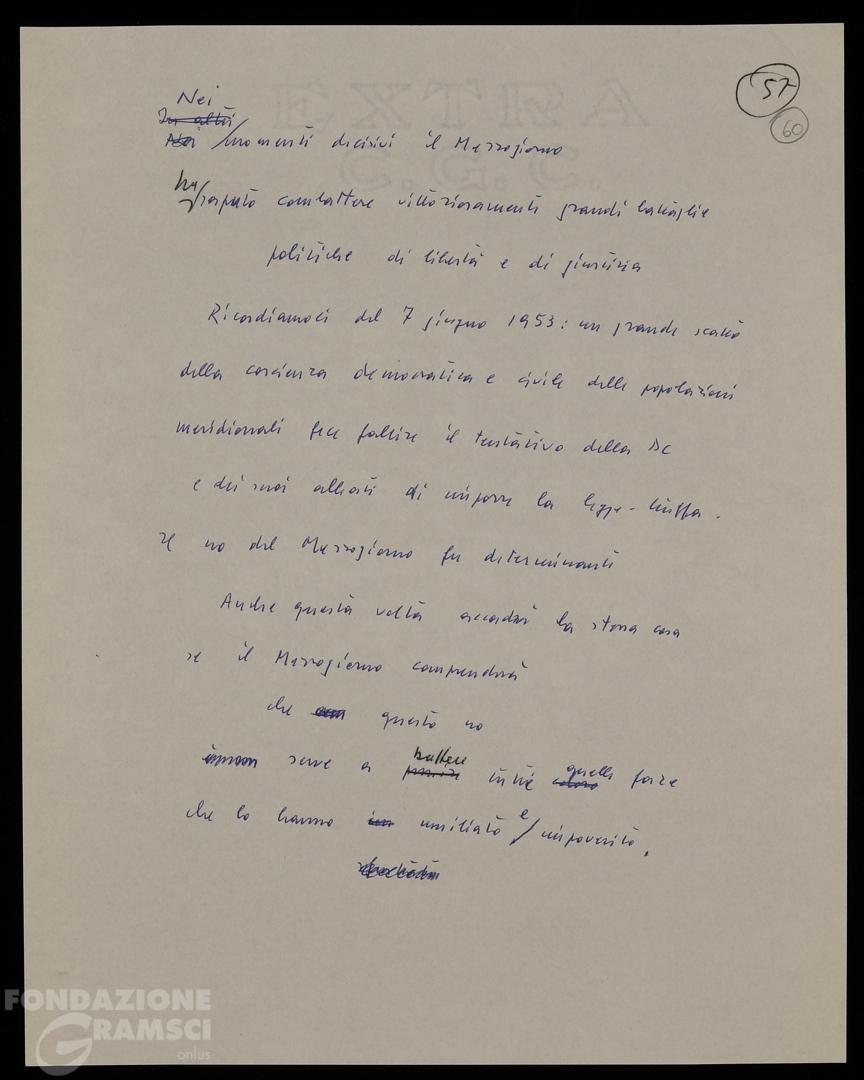 57
60
EXTRA
Nei
In altri
Nei momenti decisivi il Mezzogiorno
ha saputo combattere vittoriosamente grandi battaglie
politiche di libertà e di giustizia
Ricordiamoci del 7 giugno 1953: un grande scatto
della coscienza democratica e civile delle popolazioni
meridionali fece fallire il tentativo della DC
e dei suoi alleati di imporre la legge-truffa.
Il no del Mezzogiorno fu determinante
Anche questa volta accadrà la stessa cosa
se il Mezzogiorno comprenderà
che questo no
serve a battere tutte quelle forze
che lo hanno umiliato e impoverito.
FONDAZIONE
GRAMSCI
onlus